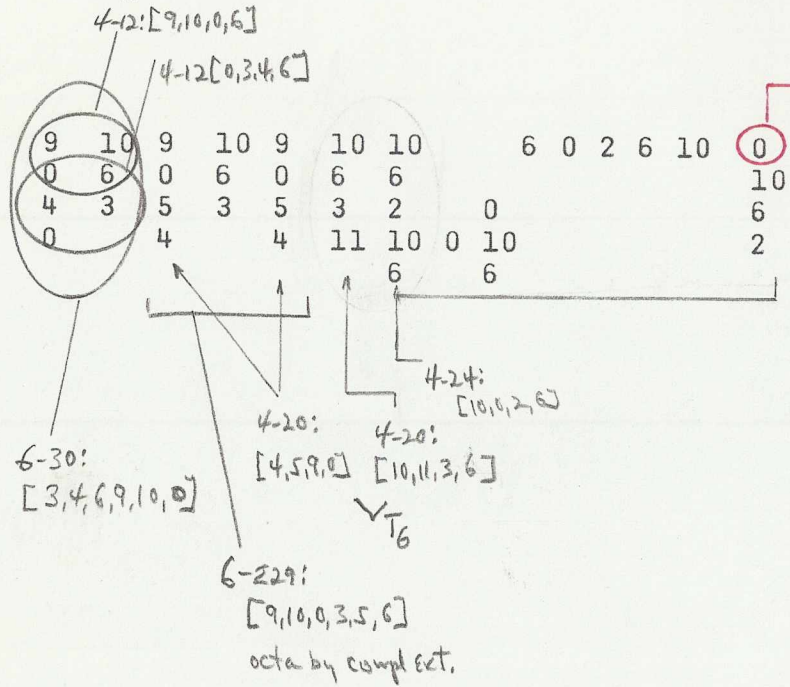 4-12:[9,10,0,6]
4-12[0,3,4,6]
9 10 9 10 9 10 10 6 0 2 6 10 0
0 6 0 6 0 6 6 10
4 3 5 3 5 3 2 0 6
0 4 4 11 10 0 10 2
6 6
4-24:
[10,0,2,6]
4-20:
[4,5,9,0]
4-20:
[10,11,3,6]
T6
6-30:
[3,4,6,9,10,0]
6-Z29:
[9,10,0,3,5,6]
octa by compl ext.